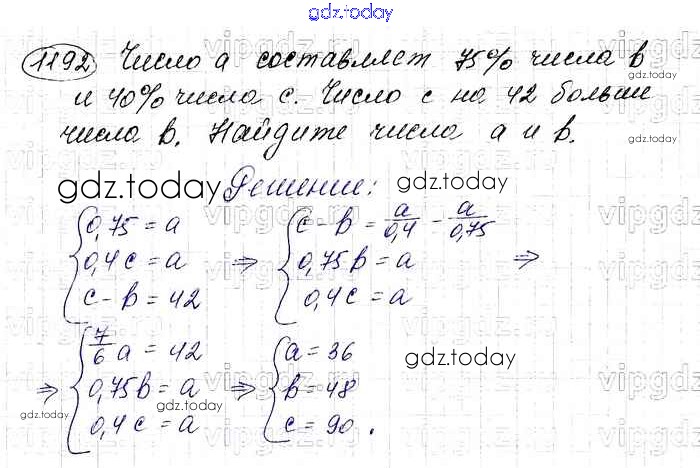 gdz.today
1192. Число a составляет 75% числа b
и 40% числа c. Число c на 42 больше
числа b. Найдите числа a и b.
gdz.today
gdz.today Решение: gdz.today
{0,75 = a
0,4c = a
c - b = 42
⇒ {c - b = a/0,4 - a/0,75
0,75b = a
0,4c = a ⇒
⇒ {7/6 a = 42
0,75b = a
0,4c = a
⇒ {a = 36
b = 48
c = 90.
gdz.today
gdz.today
gdz.today